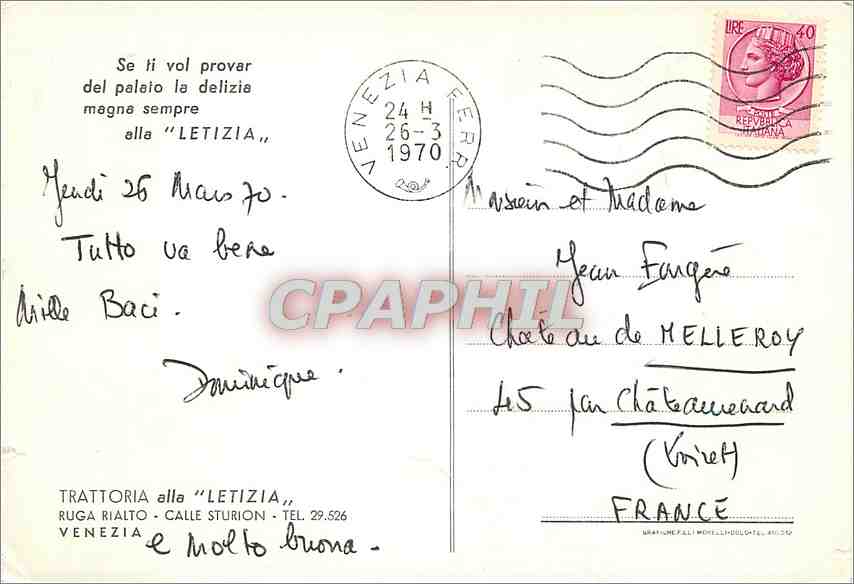 Se ti vol provar
del palato la delizia
magna sempre
alla "LETIZIA„
Jeudi 26 Mars 70.
Tutto va bene
Mille Baci.
Dominique.
TRATTORIA alla "LETIZIA„
RUGA RIALTO - CALLE STURION - TEL. 29.526
VENEZIA
e molto buona.
VENEZIA FERR.
24 H
26-3
1970
LIRE 40
POSTE
REPVBBLICA
ITALIANA
Monsieur et Madame
Jean Fargère
Château de MELLEROY
45 par Châteaurenard
(Loiret)
FRANCE
CPAPHIL